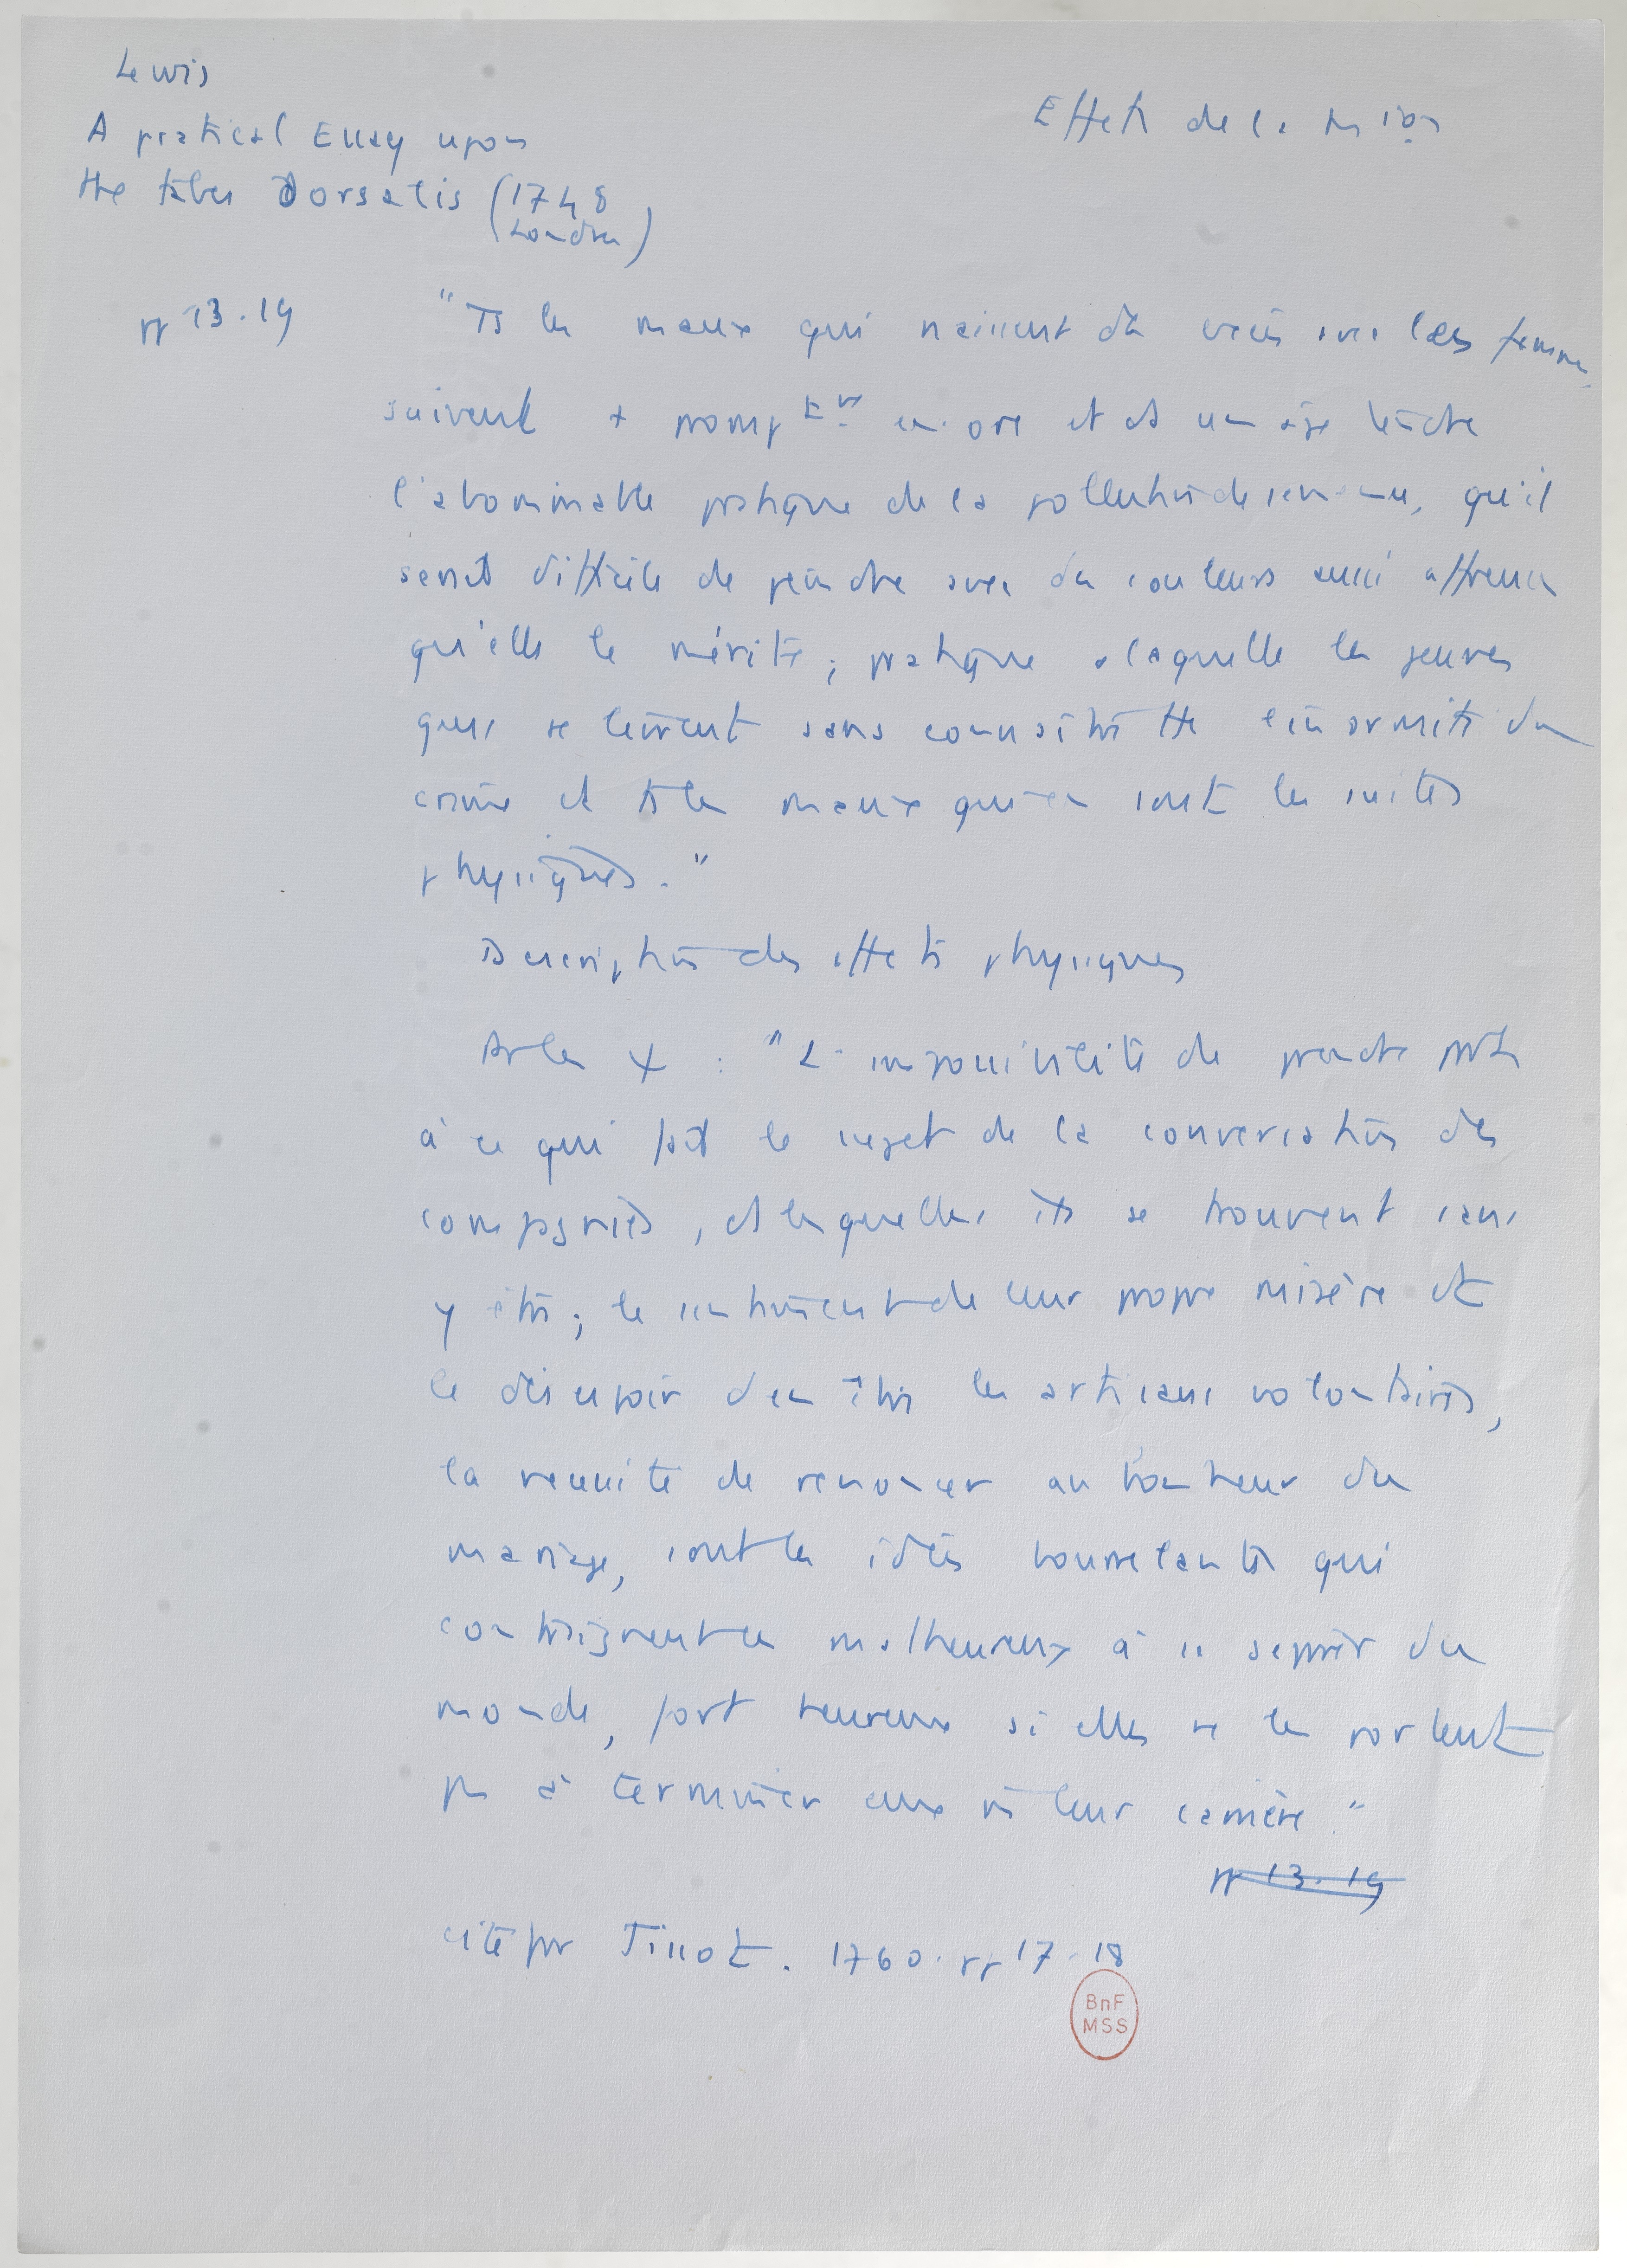 Lewis
A pratical Essay upon
the tabes Dorsalis (1748
Londres)
Effets de la m ion
pp 13.19
"Ts les maux qui naissent des excès avec les femmes,
suivent + prompt mt encore et ds un âge tendre
l'abominable pratique de la pollution de soi-même, qu'il
serait difficile de peindre avec des couleurs aussi affreuses
qu'elle le mérite ; pratique à laquelle les jeunes
gens se livrent sans connaître tte l'énormité du
crime et ts les maux qui en sont les suites
physiques."
Description des effets physiques
"L'impossibilité de prendre part
à ce qui fait le sujet de la conversation des
compagnies, ds lesquelles ils se trouvent sans
y être ; le sentiment de leur propre misère et
le désespoir d'en être les artisans volontaires,
la nécessité de renoncer au bonheur du
mariage, sont les idées bourrelantes qui
contraignent ces malheureux à se séparer du
monde, fort heureux si elles ne les portent
pas à terminer eux m leur carrière."
pp 13.19
cité par Tissot. 1760. pp 17-18
BnF
MSS